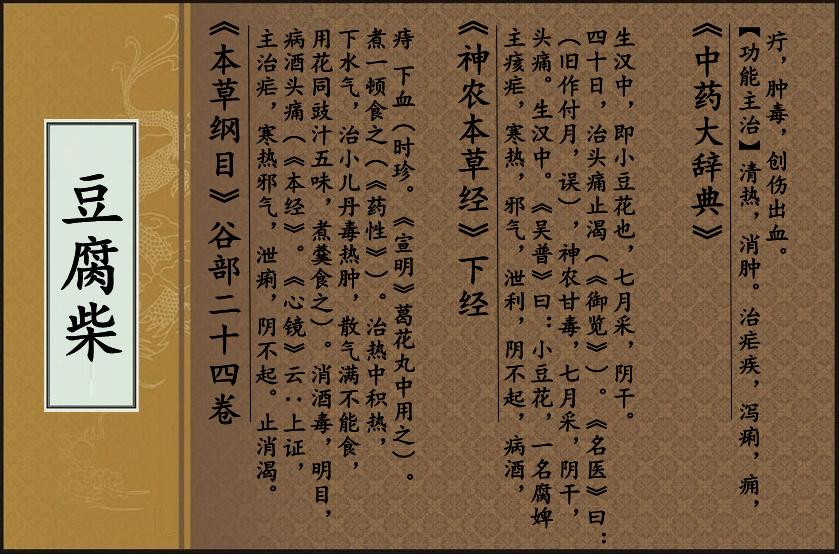 豆腐柴
《本草纲目》谷部二十四卷
主治疟，寒热邪气，泄痢，阴不起。止消渴。
病酒头痛（《本经》。《心镜》云：上证，
用花同豉汁五味，煮羹食之）。消酒毒，明目，
下水气，治小儿丹毒热肿，散气满不能食，
煮一顿食之（《药性》）。治热中积热，
痔 下血（时珍。《宣明》葛花丸中用之）。
《神农本草经》下经
主痎疟，寒热，邪气，泄利，阴不起，病酒，
头痛。生汉中。《吴普》曰：小豆花，一名腐婢
（旧作付月，误），神农甘毒，七月采，阴干，
四十日，治头痛止渴（《御览》）。《名医》曰：
生汉中，即小豆花也，七月采，阴干。
《中药大辞典》
【功能主治】清热，消肿。治疟疾，泻痢，痈，
疔，肿毒，创伤出血。